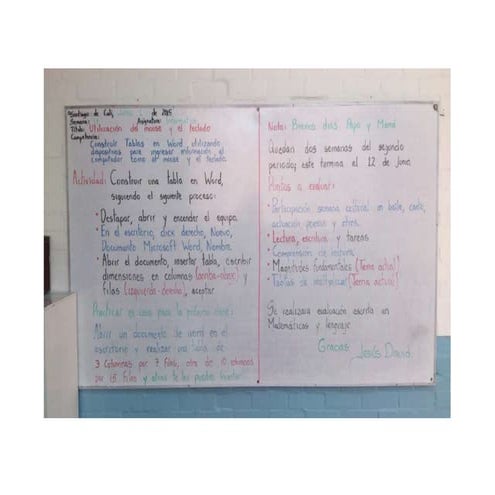 Santiago de Cali, de 2015
Semana: Asignatura: Informática
Título: Utilización del mouse y el teclado
Competencia:
Construir Tablas en Word, utilizando
dispositivos para ingresar información al
computador como el mouse y el teclado.
Actividad: Construir una tabla en Word,
siguiendo el siguiente proceso:
• Destapar, abrir y encender el equipo.
• En el escritorio, click derecho, Nuevo,
Documento Microsoft Word, Nombre.
• Abrir el documento, insertar tabla, escribir
dimensiones en columnas (arriba-abajo) y
filas (izquierda-derecha), aceptar
Practicar en casa para la próxima clase:
Abrir un documento de word en el
escritorio y realizar una tabla de
3 columnas por 7 filas, otra de 10 columnas
por 15 filas y otras te las puedes inventar
Nota: Buenos días Papá y Mamá
Quedan dos semanas del segundo
periodo, este termina el 12 de Junio
Puntos a evaluar:
• Participación semana cultural en baile, canto,
actuación, poesía y otros.
• Lectura, escritura y tareas
• Comprensión de lectura.
• Magnitudes fundamentales (Tema actual)
• Tablas de multiplicar (Tema actual)
Se realizará evaluación escrita en
Matemáticas y lenguaje
Gracias Jesús David.